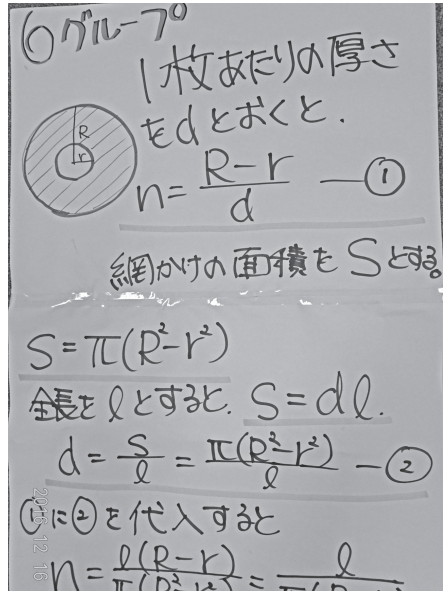 ⑥グループ
1枚あたりの厚さ
をdとおくと.
R
r
n = (R-r)/d —①
網かけの面積をSとする。
S = π(R²-r²)
全長をlとすると. S = dl.
d = S/l = π(R²-r²)/l —②
①に②を代入すると
n = l(R-r)/π(R²-r²) = l
2016 12 16